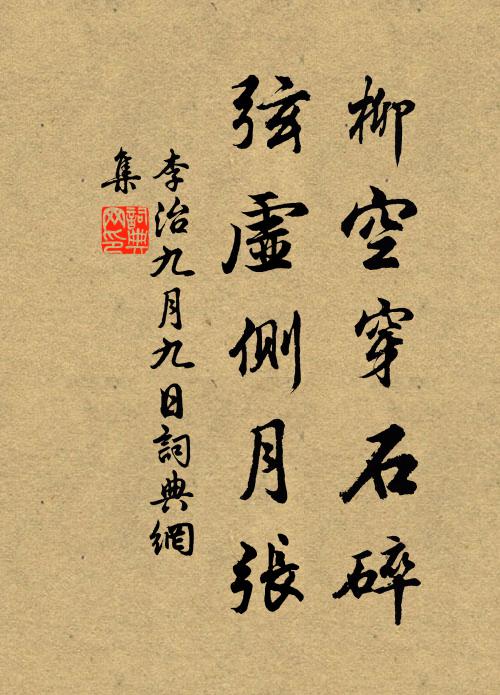 柳空穿石碎
弦虛側月張
李治九月九日詞典網
集
詞典
网印